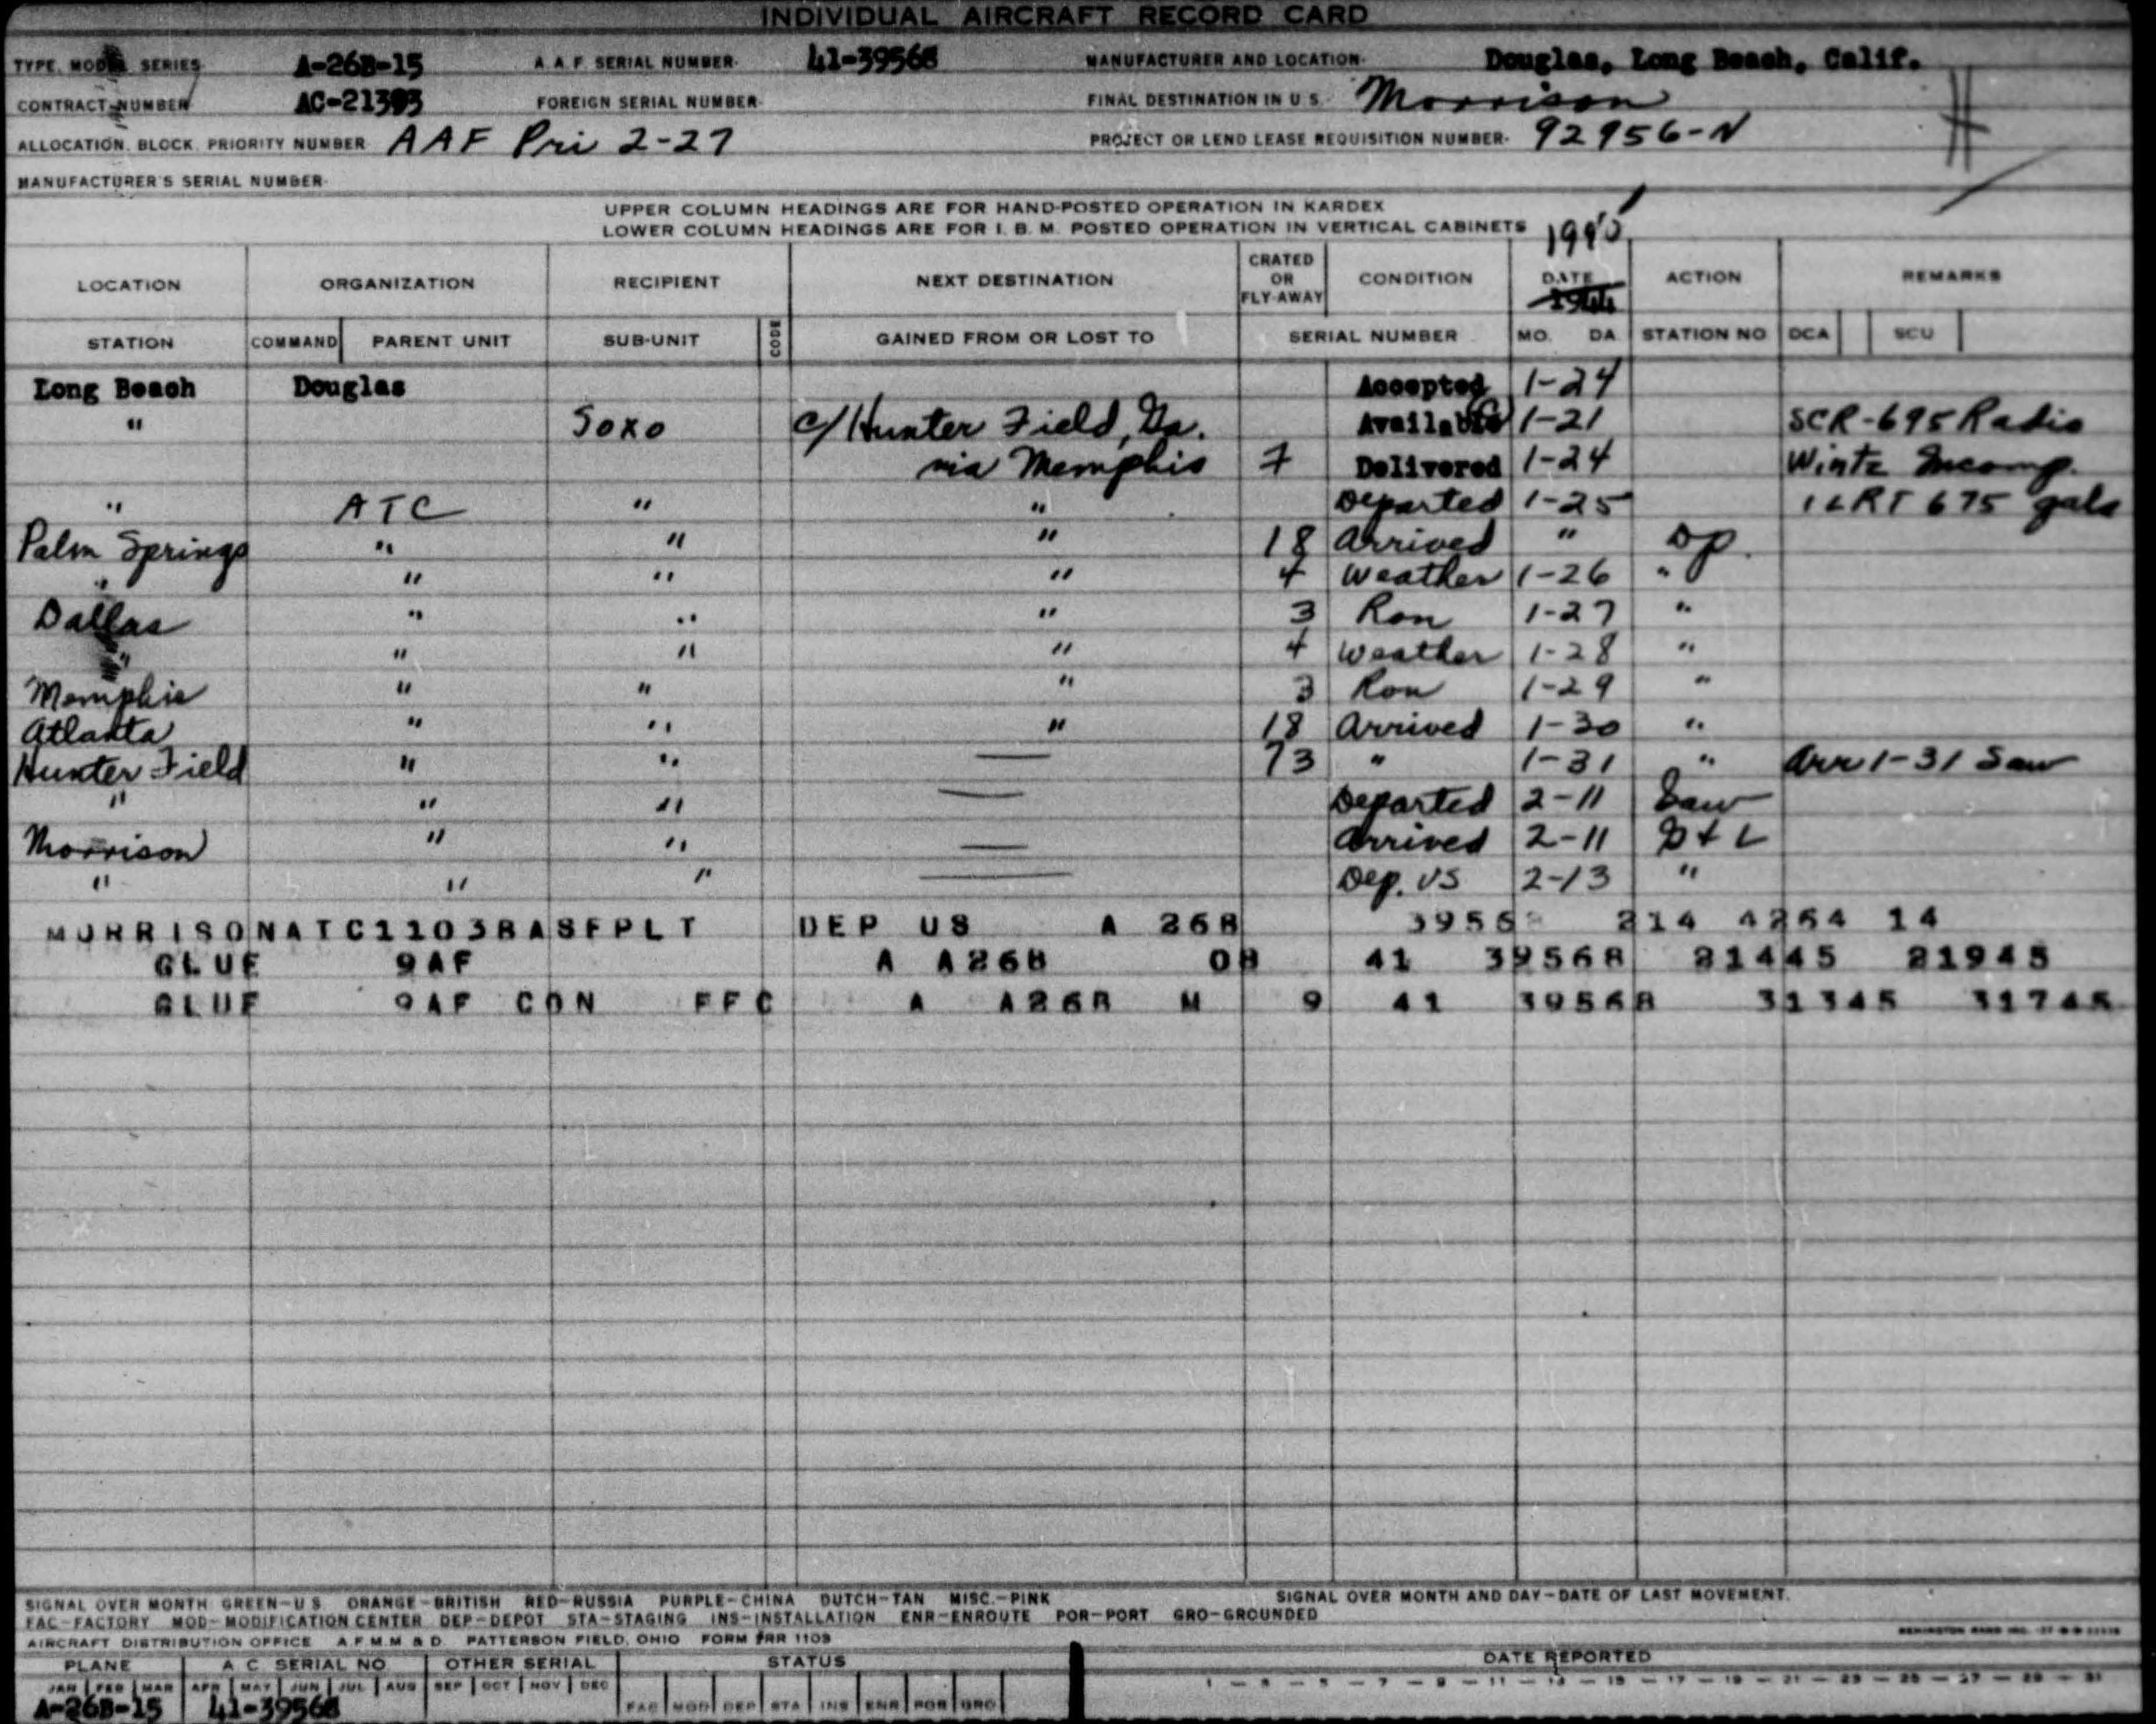 INDIVIDUAL AIRCRAFT RECORD CARD
TYPE, MODEL SERIES A-26B-15 A.A.F. SERIAL NUMBER- 41-39568 MANUFACTURER AND LOCATION- Douglas, Long Beach, Calif.
CONTRACT NUMBER AC-21393 FOREIGN SERIAL NUMBER- FINAL DESTINATION IN U S- Morrison
ALLOCATION, BLOCK, PRIORITY NUMBER AAF Pri 2-27 PROJECT OR LEND LEASE REQUISITION NUMBER- 92956-N
MANUFACTURER'S SERIAL NUMBER-
UPPER COLUMN HEADINGS ARE FOR HAND-POSTED OPERATION IN KARDEX
LOWER COLUMN HEADINGS ARE FOR I. B. M. POSTED OPERATION IN VERTICAL CABINETS 1945
LOCATION ORGANIZATION RECIPIENT NEXT DESTINATION CRATED OR FLY-AWAY CONDITION DATE 1944 ACTION REMARKS
STATION COMMAND PARENT UNIT SUB-UNIT CODE GAINED FROM OR LOST TO SERIAL NUMBER MO. DA. STATION NO DCA SCU
Long Beach Douglas Accepted 1-24
" Soxo c/Hunter Field, Ga. Available 1-21 SCR-695 Radio
via Memphis 7 Delivered 1-24 Wintz Incomp.
" ATC " " Departed 1-25 675 gals
Palm Springs " " " 18 Arrived " Op.
" " " " 4 Weather 1-26 "
Dallas " " " 3 Ron 1-27 "
" " " " 4 Weather 1-28 "
Memphis " " " 3 Ron 1-29 "
Atlanta " " " 18 Arrived 1-30 "
Hunter Field " " — 73 " 1-31 " Arr 1-31 Saw
" " " — Departed 2-11 Saw
Morrison " " — Arrived 2-11 G+L
" " " — Dep. US 2-13 "
MORRISONATC1103BASFPLT DEP US A 26B 39568 214 4264 14
GLUE 9AF A A26B 0B 41 39568 21445 21945
GLUE 9AF CON FFC A A26B M 9 41 39568 31345 31745
SIGNAL OVER MONTH GREEN-U S ORANGE-BRITISH RED-RUSSIA PURPLE-CHINA DUTCH-TAN MISC.-PINK SIGNAL OVER MONTH AND DAY-DATE OF LAST MOVEMENT.
FAC-FACTORY MOD-MODIFICATION CENTER DEP-DEPOT STA-STAGING INS-INSTALLATION ENR-ENROUTE POR-PORT GRO-GROUNDED
AIRCRAFT DISTRIBUTION OFFICE A.F.M.M & D. PATTERSON FIELD, OHIO FORM PRR 1109
PLANE A C SERIAL NO OTHER SERIAL STATUS DATE REPORTED
JAN FEB MAR APR MAY JUN JUL AUG SEP OCT NOV DEC 1 - 3 - 5 - 7 - 9 - 11 - 13 - 15 - 17 - 19 - 21 - 23 - 25 - 27 - 29 - 31
A-26B-15 41-39568 FAC MOD DEP STA INS ENR POR GRO